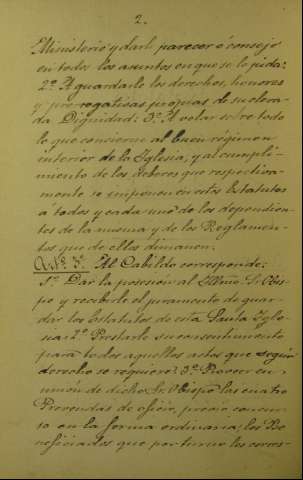 2.
Ministerio y darle parecer ó consejo
en todos los asuntos en que se lo pida:
2º A guardarle los derechos, honores
y prerrogativas propias de su eleva-
da Dignidad: 3º A velar sobre todo
lo que concierne al buen régimen
interior de la Iglesia, y al cumpli-
miento de los deberes que respectiva-
mente se imponen en estos Estatutos
á todos y cada uno de los dependien-
tes de la misma y de los Reglamen-
tos que de ellos dimanen.
Artº 3º Al Cabildo corresponde:
1º Dar la posesión al Illmo. Sr. Obis-
po y recibirle el juramento de guar-
dar los Estatutos de esta Santa Igle-
sia: 2º Prestarle su consentimiento
para todos aquellos actos que según
derecho se requiere: 3º Proveer en
unión de dicho Sr. Obispo las cuatro
Prevendas de oficio, previo concur-
so en la forma ordinaria; los Be-
neficiados que por turno les corres-